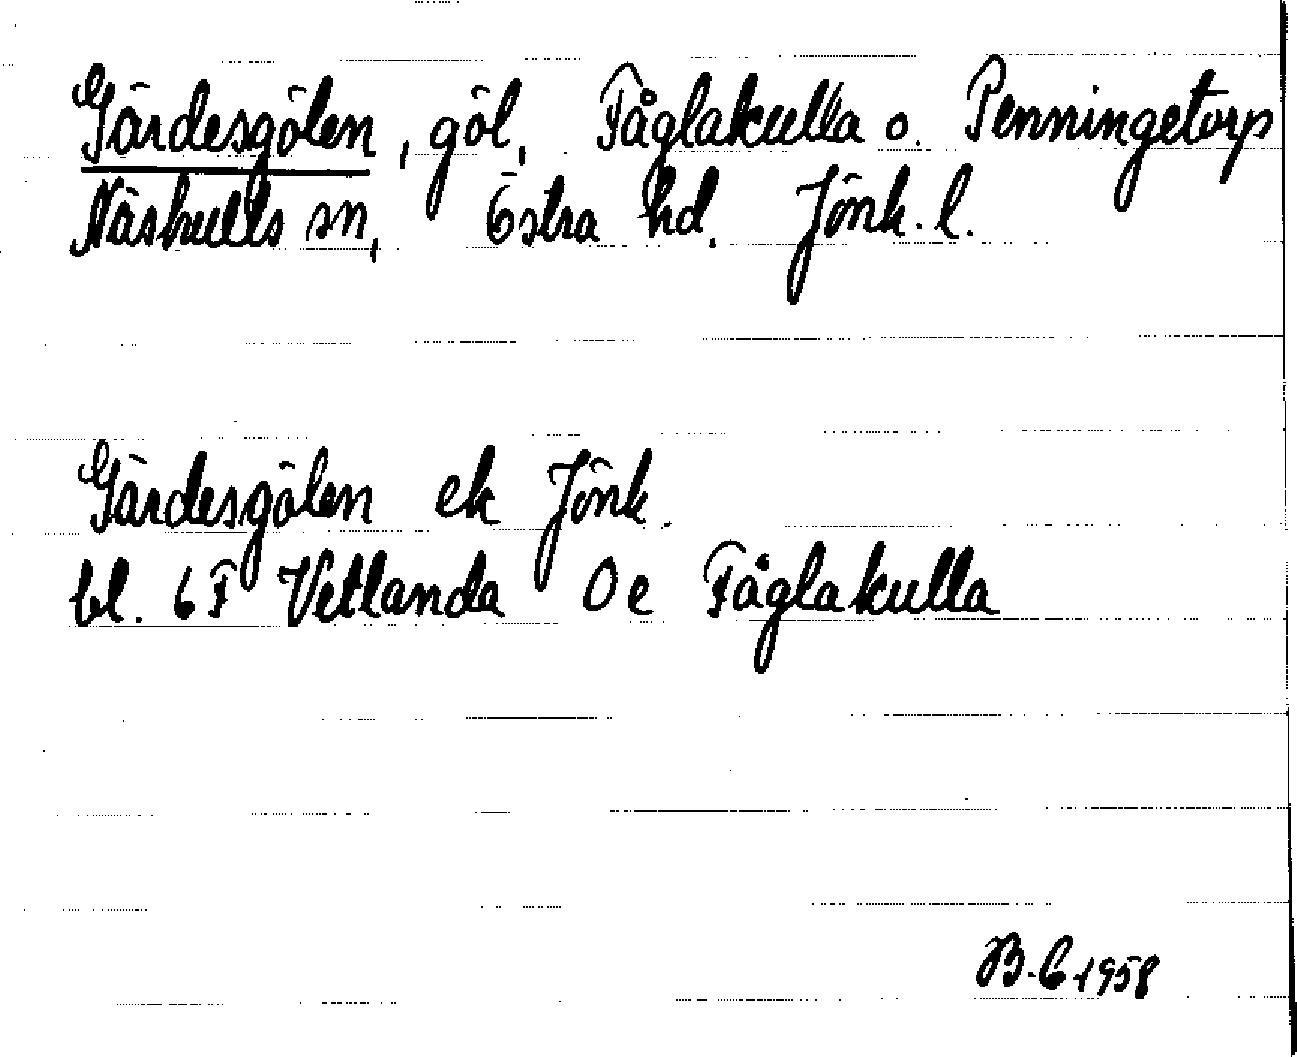 Gärdesgölen, göl, Fåglakulla o. Penningetorp
Näshults sn, Östra hd. Jönk. l.
Gärdesgölen ek Jönk.
bl. 6 F Vetlanda 0 e Fåglakulla
B. C 1958